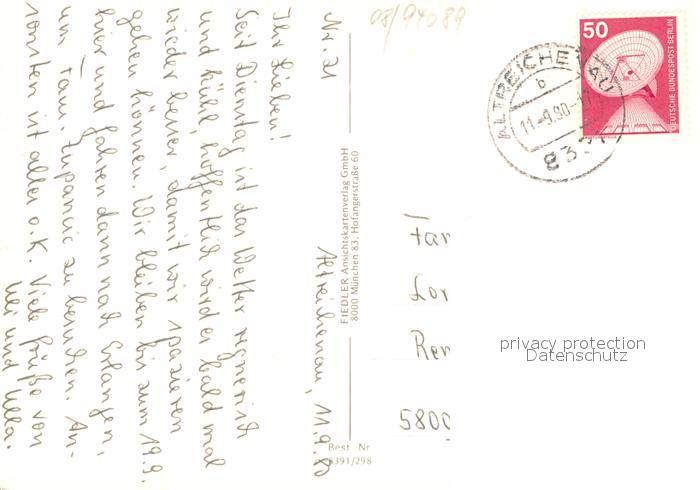 08/94089
Nr. 21
Altreichenau, 11.9.80
Ihr Lieben!
Seit Dienstag ist das Wetter regnerisch
und kühl, hoffentlich wird es bald mal
wieder besser, damit wir spazieren
gehen können. Wir bleiben bis zum 19.9.
hier und fahren dann nach Erlangen,
um Fam. Zupancic zu besuchen. An-
sonsten ist alles o.K. Viele Grüße von
und Ulla.
FIEDLER Ansichtskartenverlag GmbH
8000 München 83, Hofangerstraße 60
Best Nr
8391/298
50
DEUTSCHE BUNDESPOST BERLIN
ALTREICHENAU
b
11.-9.80-11
Fam
Lor
Ren
5800
privacy protection
Datenschutz